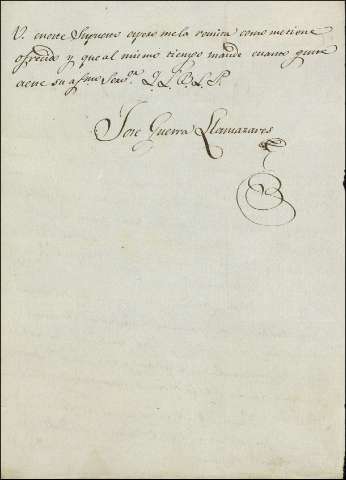 V. eneste supuesto espero me la remita como metiene
ofrecida y que al mismo tiempo mande cuanto guste
a este su af.mo Ser.or Q. S. B. S. P.
José Guerra Llamazares